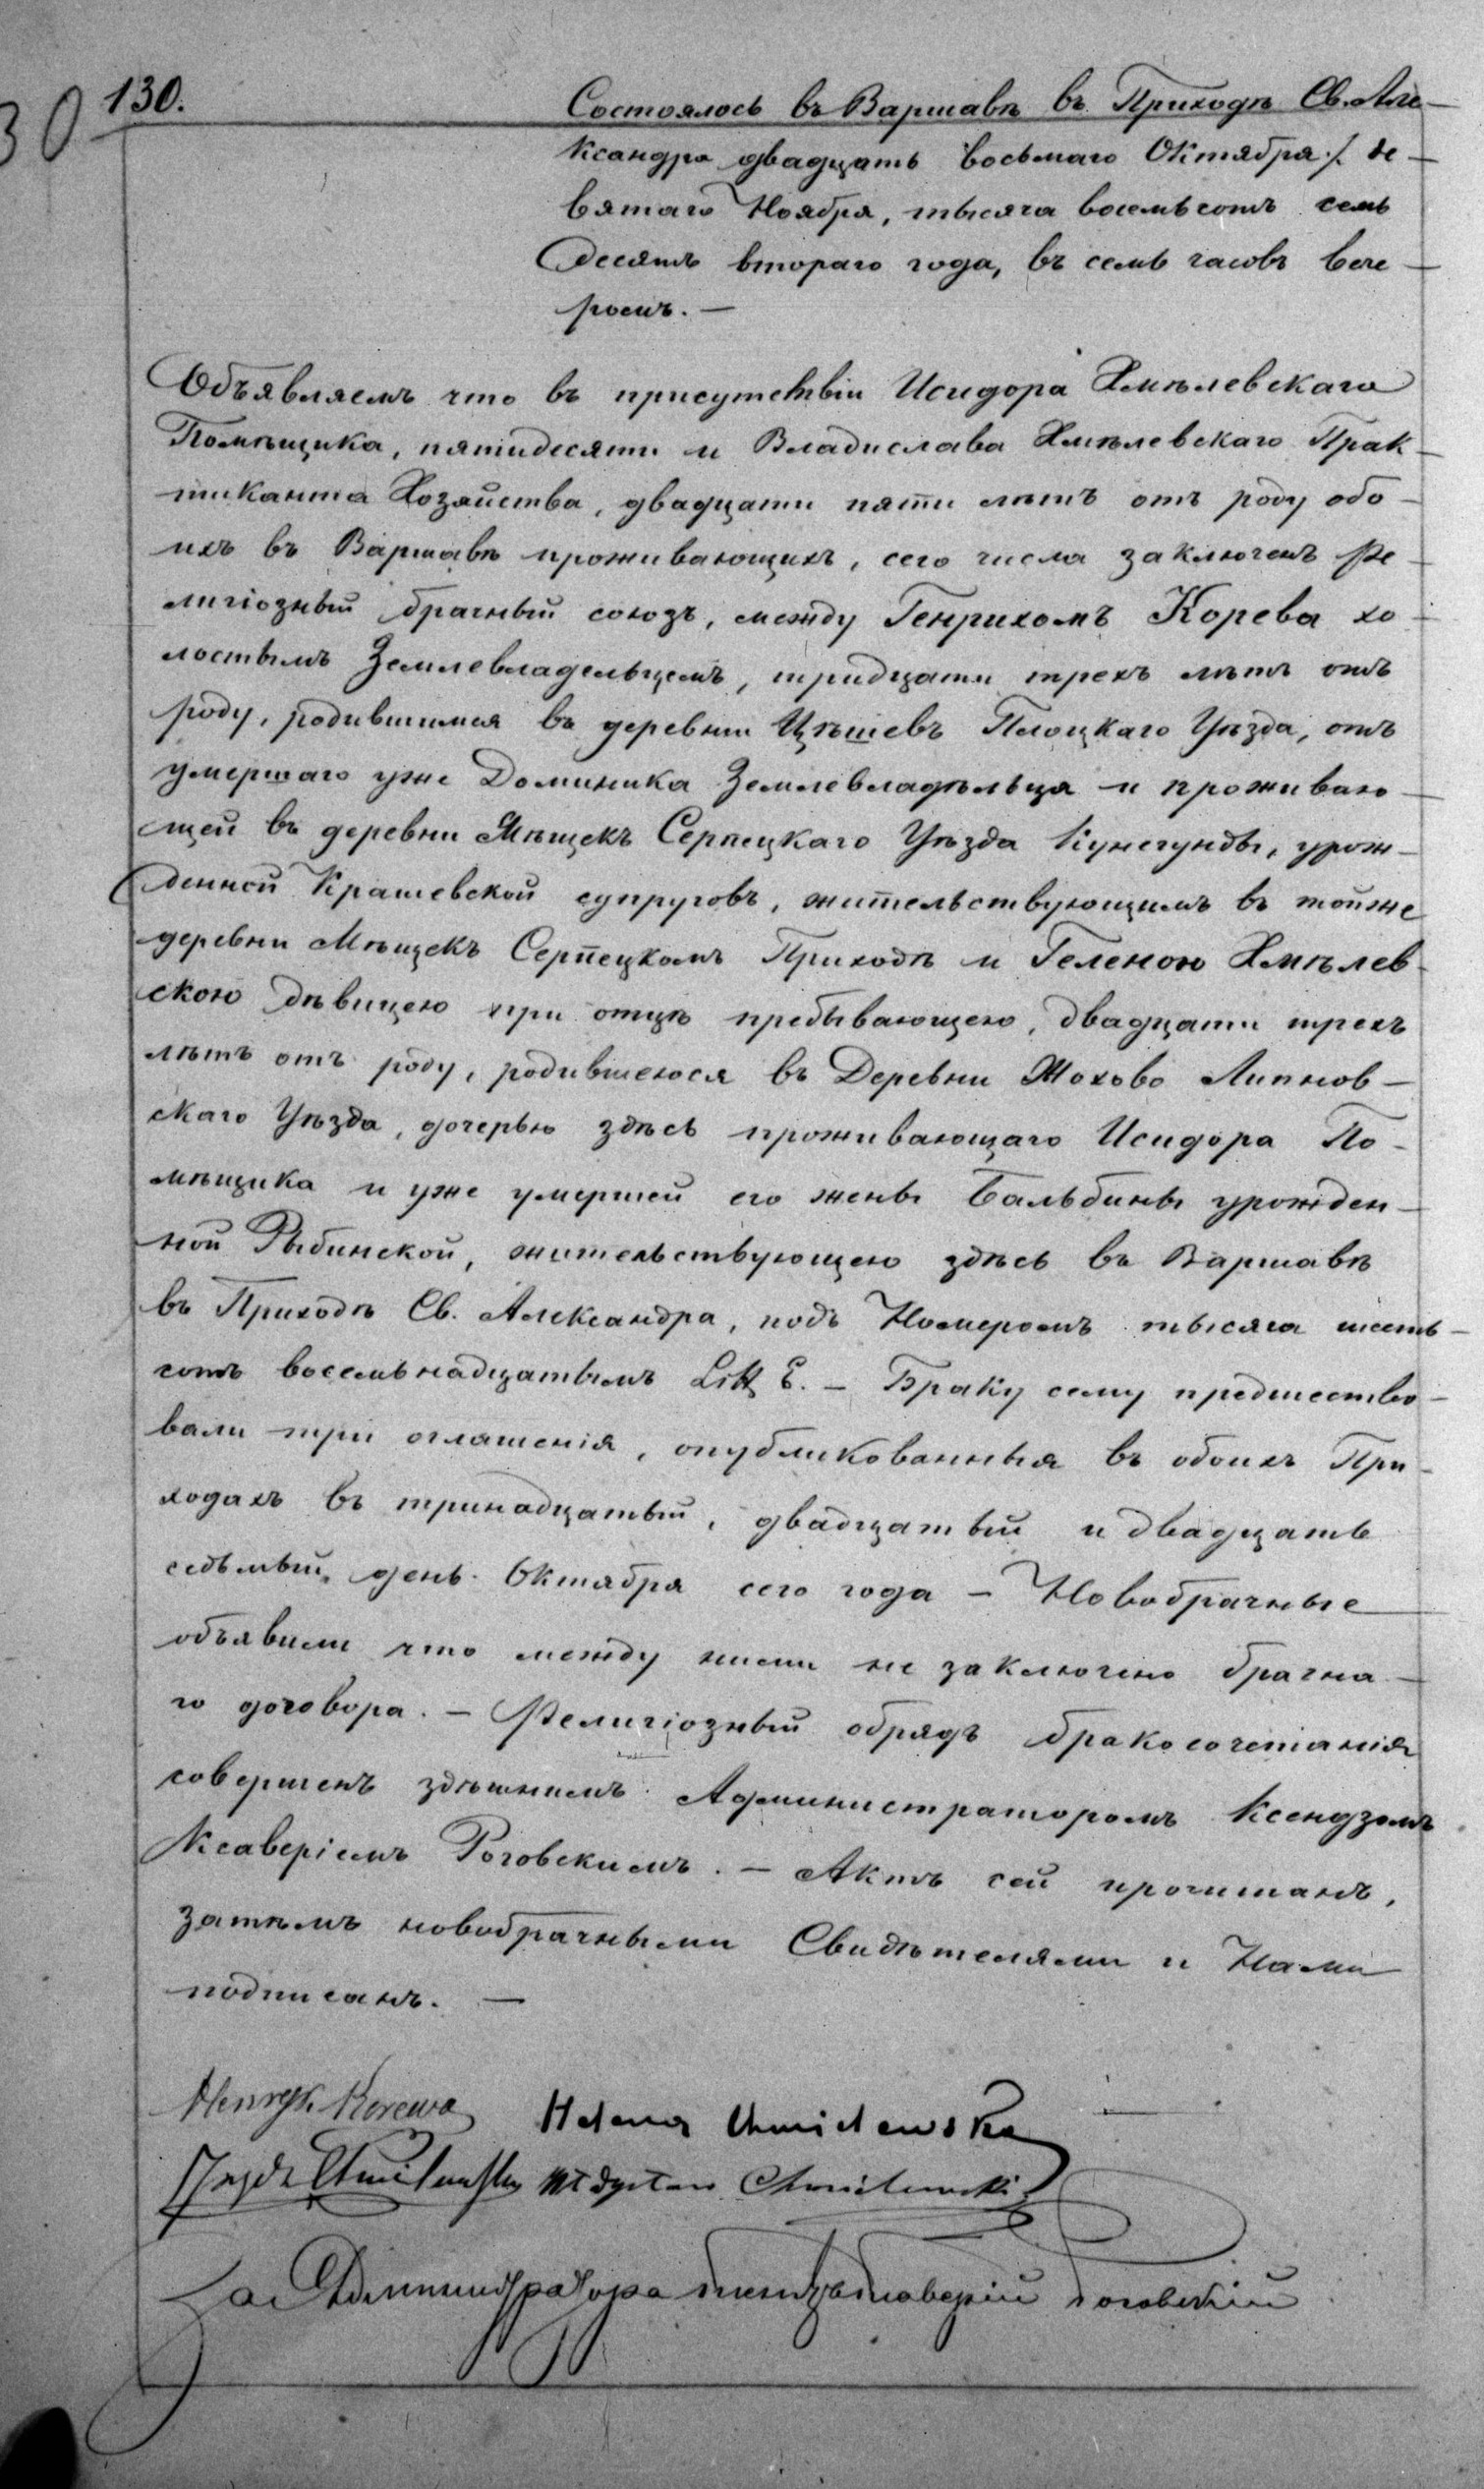 30
130.
Состоялось въ Варшавѣ въ Приходѣ Св. Але-
ксандра двадцать восьмаго Октября /. де-
вятаго Ноября, тысяча восемьсотъ семь
десятъ втораго года, въ семь часовъ вече-
ромъ. —
Объявляемъ что въ присутствіи Исидора Хмѣлевскаго
Помѣщика, пятидесяти и Владислава Хмѣлевскаго Прак-
тиканта Хозяйства, двадцати пяти лѣтъ отъ роду обо-
ихъ въ Варшавѣ проживающихъ, сего числа заключенъ Ре-
лигіозный брачный союзъ, между Генрихомъ Корева хо-
лостымъ Землевладельцемъ, тридцати трехъ лѣтъ отъ
роду, родившимся въ деревни Цѣшевъ Плоцкаго Уѣзда, отъ
умершаго уже Доминика Землевладѣльца и проживаю-
щей въ деревни Мѣщекъ Серпецкаго Уѣзда Кунегунды, урож-
денной Крашевской супруговъ, жительствующимъ въ тойже
деревни Мѣщекъ Серпецкомъ Приходѣ и Геленою Хмѣлев-
скою дѣвицею при отцѣ пребывающею, двадцати трехъ
лѣтъ отъ роду, родившеюся въ Деревни Жохово Липнов-
скаго Уѣзда, дочерью здѣсь проживающаго Исидора По-
мѣщика и уже умершей его жены Бальбины урожден-
ной Рыбинской, жительствующею здѣсь въ Варшавѣ
въ Приходѣ Св. Александра, подъ Номеромъ тысяча шесть-
сотъ восемьнадцатымъ Litt E. — Браку сему предшество-
вали три оглашенія, опубликованныя въ обоихъ При-
ходахъ въ тринадцатый, двадцатый и двадцать
седьмый день Октября сего года — Новобрачные
объявили что между ними не заключено брачна-
го договора. — Религіозный обрядъ бракосочетанія
совершенъ здѣшнимъ Администраторомъ Ксендзомъ
Ксаверіемъ Роговскимъ. — Актъ сей прочитанъ,
затѣмъ новобрачными Свидѣтелями и Нами
подписанъ. —
Henryk Korewa Helena Chmielewska
Chmielewski Władysław Chmielewski
За Администратора Ксендзъ Ксаверій Роговскій